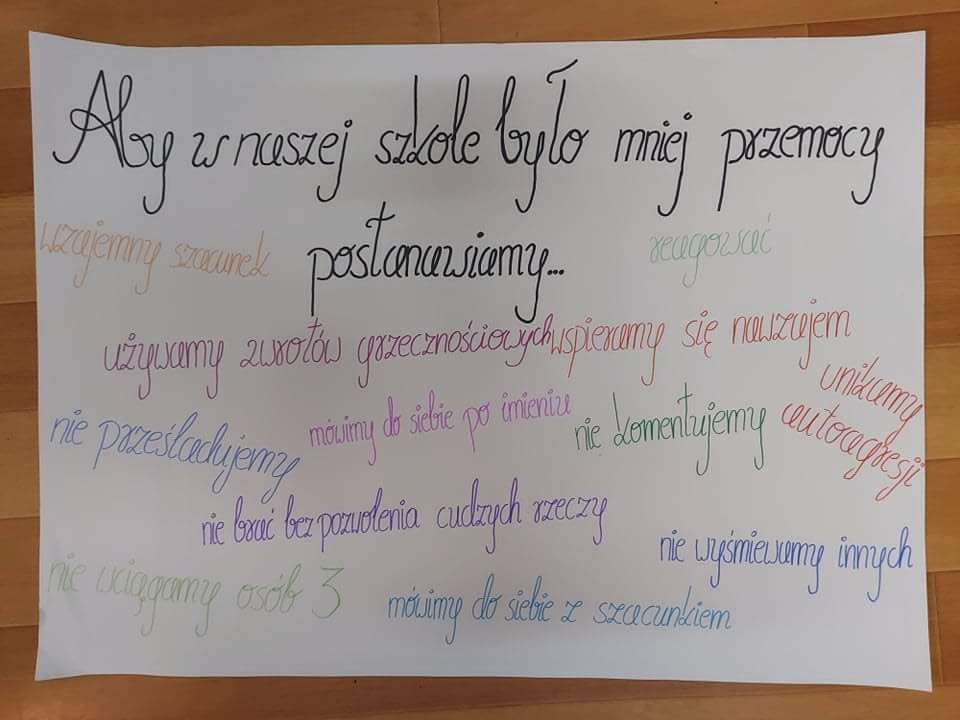 Aby w naszej szkole było mniej przemocy
postanawiamy...
wzajemny szacunek
reagować
używamy zwrotów grzecznościowych
wspieramy się nawzajem
unikamy
autoagresji
nie prześladujemy
mówimy do siebie po imieniu
nie komentujemy
nie brać bez pozwolenia cudzych rzeczy
nie wyśmiewamy innych
nie wciągamy osób 3
mówimy do siebie z szacunkiem